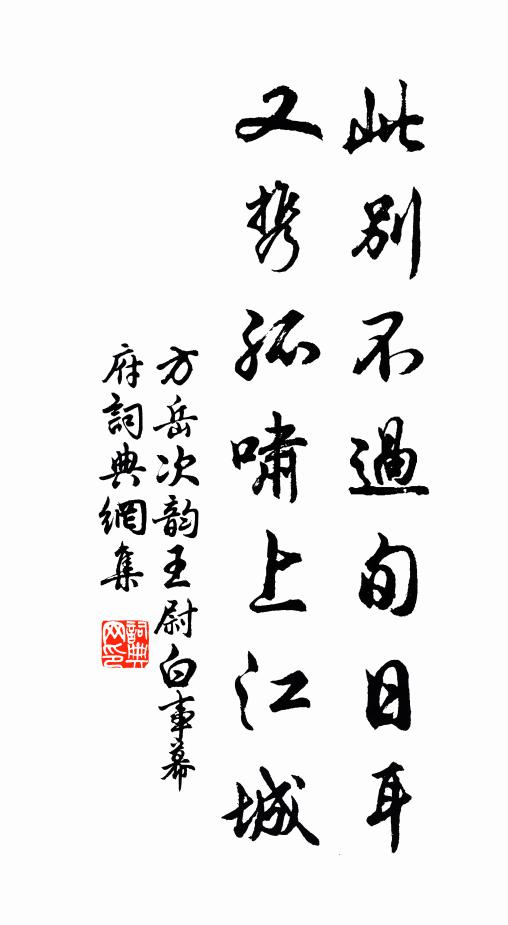 此別不過旬日耳
又携孤嘯上江城
方岳次韵王尉白事幕
府詞典網集
詞典
网印